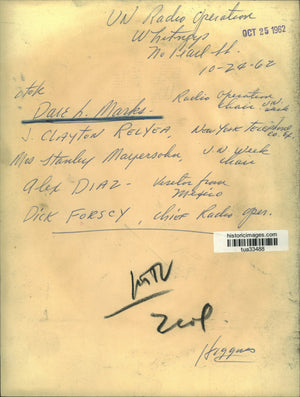 UN Radio Operation
OCT 25 1962
Whitneys
No Pearl St.
10-24-62
Dale L. Marks - Radio Operation
Chair UN
Week
J. CLAYTON RELYEA, New York Telephone
Co.
Mrs Stanley Mayersohn UN Week
Chair
Alex DIAZ - Visitor from
Mexico
DICK FORSCY, Chief Radio oper.
historicimages.com
tua33488
2 col.
Higgins